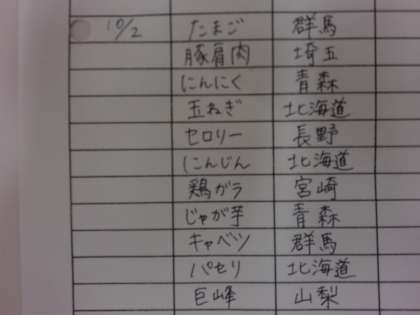 10/2 たまご 群馬
豚肩肉 埼玉
にんにく 青森
玉ねぎ 北海道
セロリー 長野
にんじん 北海道
鶏ガラ 宮崎
じゃが芋 青森
キャベツ 群馬
パセリ 北海道
巨峰 山梨